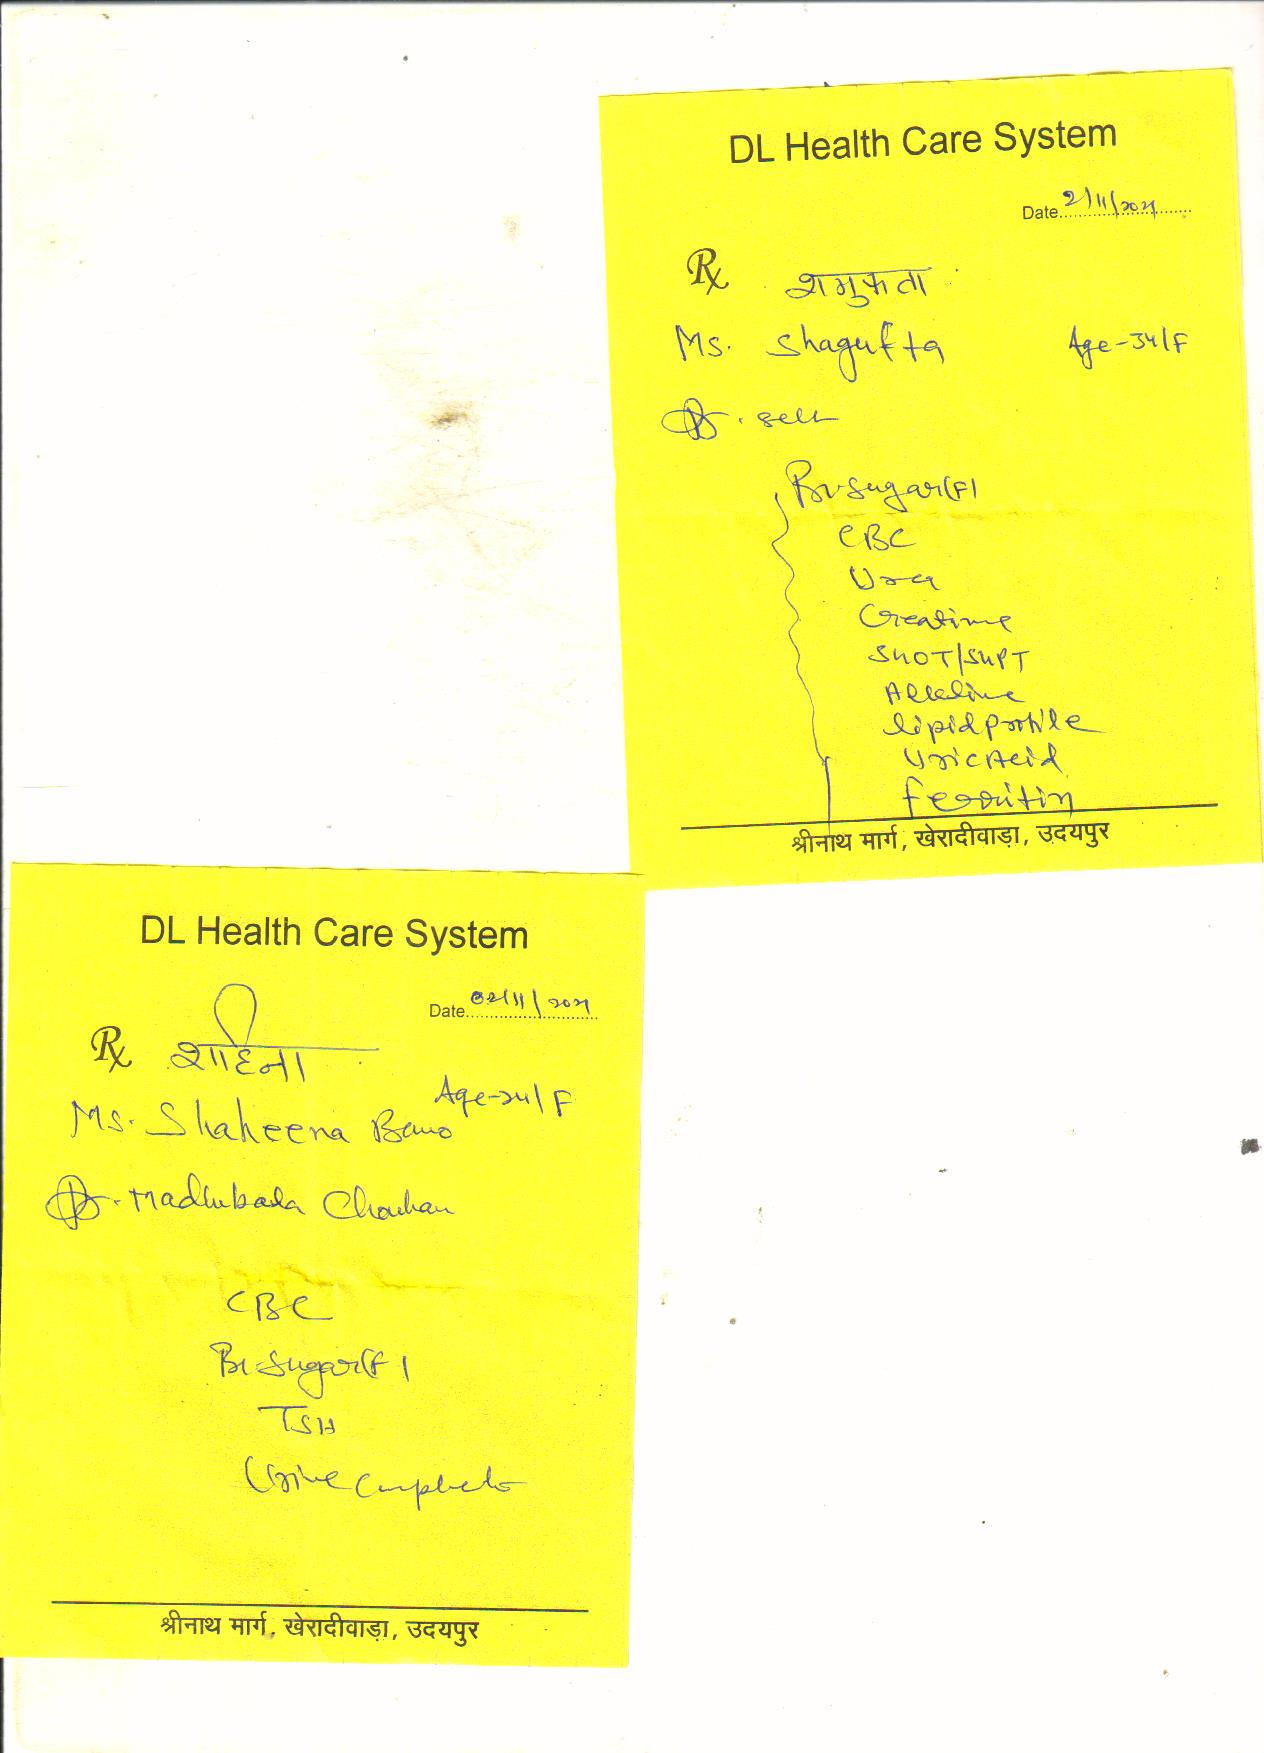 DL Health Care System
Date 2/11/2021
Rx शगुफता
Ms. Shagufta Age-34/F
Dr. self
Bl-Sugar(F)
CBC
Urea
Creatinine
SGOT/SGPT
Alkaline
lipid profile
Uric Acid
Ferritin
श्रीनाथ मार्ग, खेरादीवाड़ा, उदयपुर
DL Health Care System
Date 02/11/2021
Rx शाहिना
Age-24/F
Ms. Shaheena Bano
Dr. Madhubala Chouhan
CBC
Bl-Sugar(F)
TSH
Urine Complete
श्रीनाथ मार्ग, खेरादीवाड़ा, उदयपुर